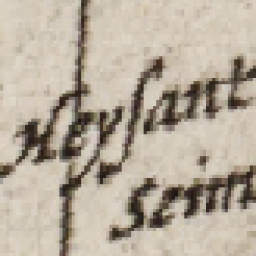 Neyſant
seim